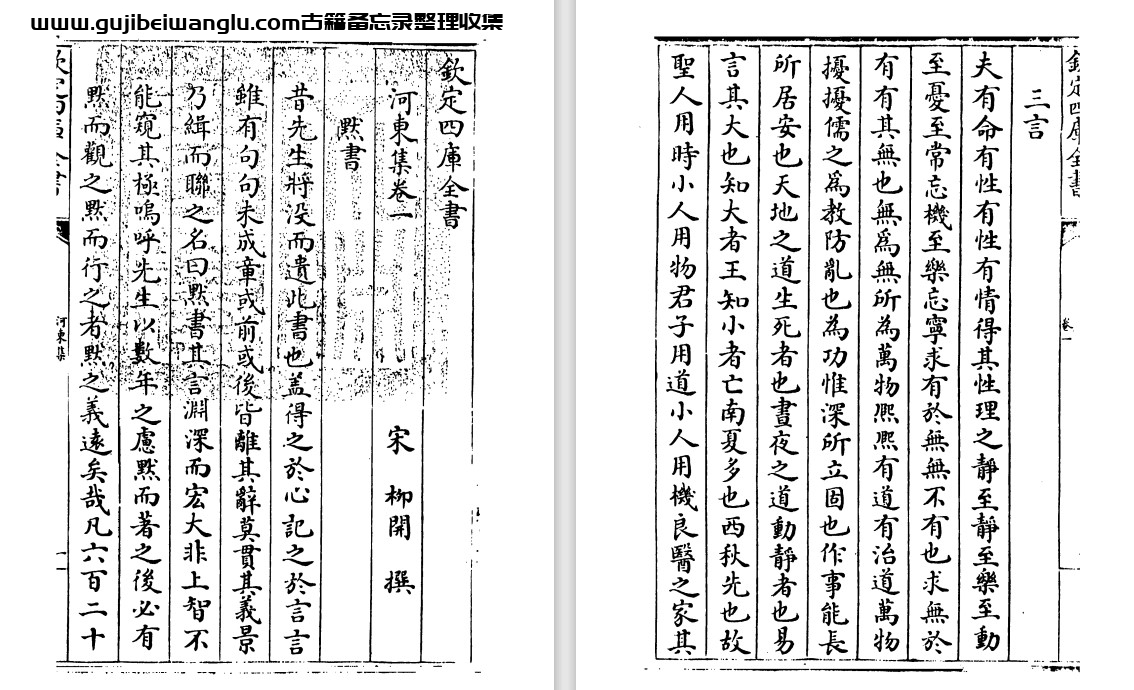 www.gujibeiwanglu.com古籍备忘录整理收集
欽定四庫全書
河東集卷一
宋 柳開 撰
默書
昔先生將没而遺此書也盖得之於心記之於言言
雖有句句未成章或前或後皆離其辭莫貫其義景
乃緝而聯之名曰默書其言淵深而宏大非上智不
能窺其極嗚呼先生以數年之慮默而著之後必有
默而觀之默而行之者默之義逺矣哉凡六百二十
欽定四庫全書
河東集
一
欽定四庫全書
卷一
三言
夫有命有性有性有情得其性理之靜至靜至樂至動
至憂至常忘機至樂忘寧求有於無無不有也求無於
有有其無也無爲無所為萬物熈熈有道有治道萬物
擾擾儒之爲教防亂也為功惟深所立固也作事能長
所居安也天地之道生死者也晝夜之道動靜者也易
言其大也知大者王知小者亡南夏多也西秋先也故
聖人用時小人用物君子用道小人用機良醫之家其